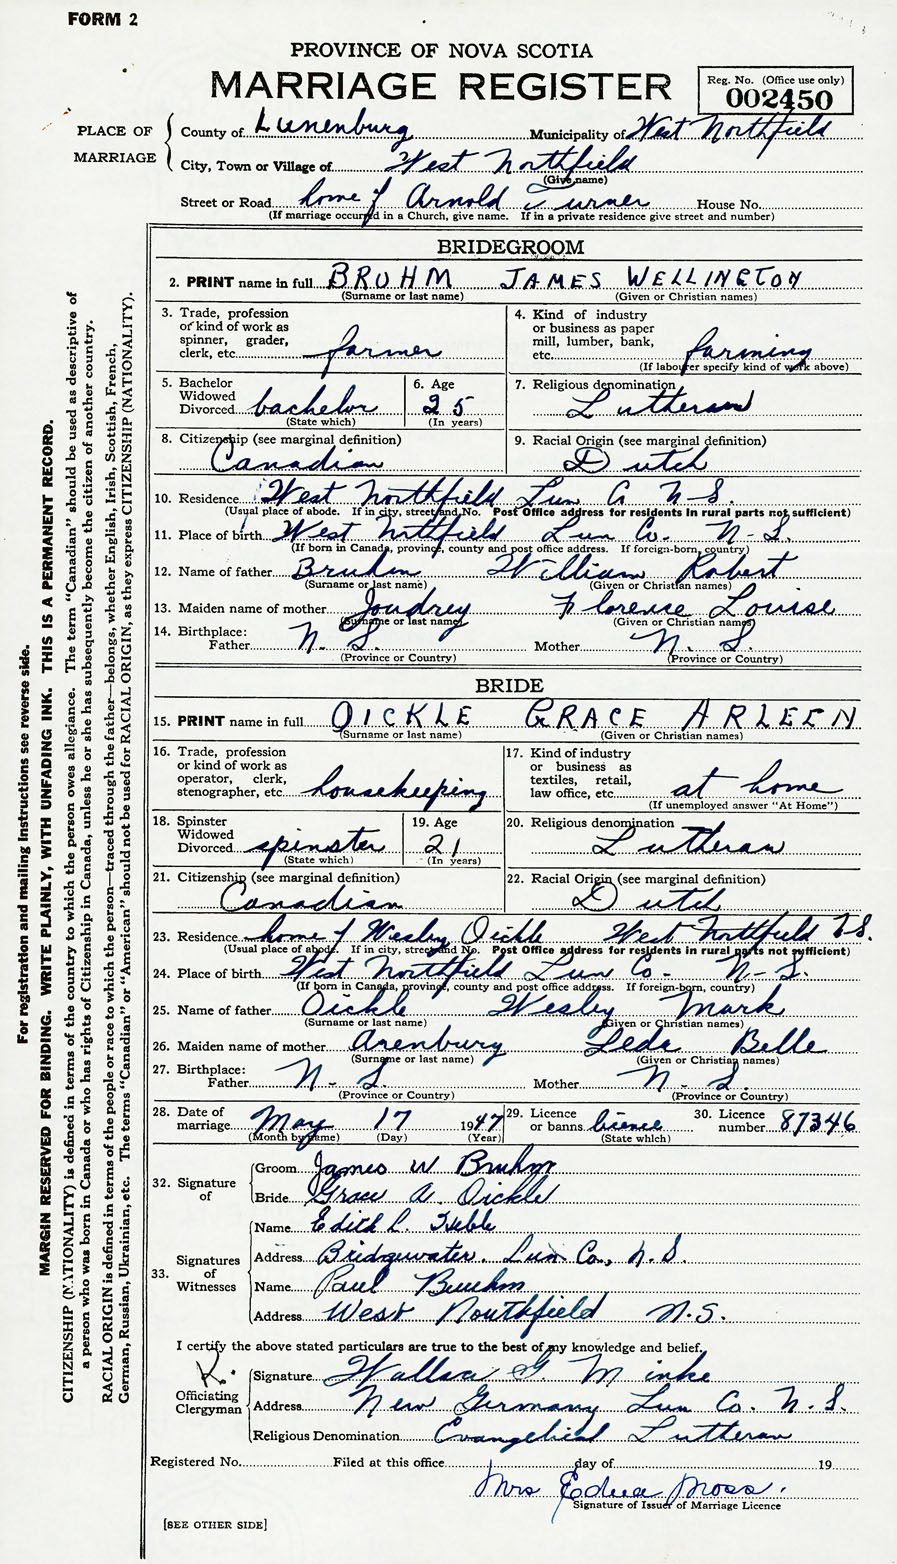 FORM 2
PROVINCE OF NOVA SCOTIA
MARRIAGE REGISTER
Reg. No. (Office use only)
002450
PLACE OF MARRIAGE
County of Lunenburg Municipality of West Northfield
City, Town or Village of West Northfield
(Give name)
Street or Road home of Arnold Turner House No.
(If marriage occurred in a Church, give name. If in a private residence give street and number)
BRIDEGROOM
2. PRINT name in full BRUHM JAMES WELLINGTON
(Surname or last name) (Given or Christian names)
3. Trade, profession
or kind of work as
spinner, grader,
clerk, etc. farmer
4. Kind of industry
or business as paper
mill, lumber, bank,
etc. farming
(If labourer specify kind of work above)
5. Bachelor
Widowed
Divorced bachelor
(State which)
6. Age
25
(In years)
7. Religious denomination
Lutheran
8. Citizenship (see marginal definition)
Canadian
9. Racial Origin (see marginal definition)
Dutch
10. Residence West Northfield Lun Co N-S.
(Usual place of abode. If in city, street and No. Post Office address for residents in rural parts not sufficient)
11. Place of birth West Northfield Lun Co. N-S.
(If born in Canada, province, county and post office address. If foreign-born, country)
12. Name of father Bruhm William Robert
(Surname or last name) (Given or Christian names)
13. Maiden name of mother Joudrey Florence Louise
(Surname or last name) (Given or Christian names)
14. Birthplace:
Father N. S. Mother N. S.
(Province or Country) (Province or Country)
BRIDE
15. PRINT name in full OICKLE GRACE ARLEEN
(Surname or last name) (Given or Christian names)
16. Trade, profession
or kind of work as
operator, clerk,
stenographer, etc. housekeeping
17. Kind of industry
or business as
textiles, retail,
law office, etc. at home
(If unemployed answer "At Home")
18. Spinster
Widowed
Divorced spinster
(State which)
19. Age
21
(In years)
20. Religious denomination
Lutheran
21. Citizenship (see marginal definition)
Canadian
22. Racial Origin (see marginal definition)
Dutch
23. Residence home of Wesley Oickle West Northfield N.S.
(Usual place of abode. If in city, street and No. Post Office address for residents in rural parts not sufficient)
24. Place of birth West Northfield Lun Co- N-S.
(If born in Canada, province, county and post office address. If foreign-born, country)
25. Name of father Oickle Wesley Mark
(Surname or last name) (Given or Christian names)
26. Maiden name of mother Arenburg Leda Belle
(Surname or last name) (Given or Christian names)
27. Birthplace:
Father N- S. Mother N- S.
(Province or Country) (Province or Country)
28. Date of
marriage May 17 1947
(Month by name) (Day) (Year)
29. Licence
or banns licence
(State which)
30. Licence
number 87346
32. Signature of
Groom James W Bruhm
Bride Grace A. Oickle
33. Signatures of Witnesses
Name Edith L. Hebb
Address Bridgewater, Lun Co., N.S.
Name Paul Bruhm
Address West Northfield N.S.
I certify the above stated particulars are true to the best of my knowledge and belief.
Officiating Clergyman
Signature Wallace G. Minke
Address New Germany Lun Co. N. S.
Religious Denomination Evangelical Lutheran
Registered No. Filed at this office day of 19
Mrs Edna Moss.
Signature of Issuer of Marriage Licence
[SEE OTHER SIDE]
For registration and mailing instructions see reverse side.
MARGIN RESERVED FOR BINDING. WRITE PLAINLY, WITH UNFADING INK. THIS IS A PERMANENT RECORD.
CITIZENSHIP (NATIONALITY) is defined in terms of the country to which the person owes allegiance. The term "Canadian" should be used as descriptive of
a person who was born in Canada or who has rights of Citizenship in Canada, unless he or she has subsequently become the citizen of another country.
RACIAL ORIGIN is defined in terms of the people or race to which the person—traced through the father—belongs, whether English, Irish, Scottish, French,
German, Russian, Ukrainian, etc. The terms "Canadian" or "American" should not be used for RACIAL ORIGIN, as they express CITIZENSHIP (NATIONALITY).